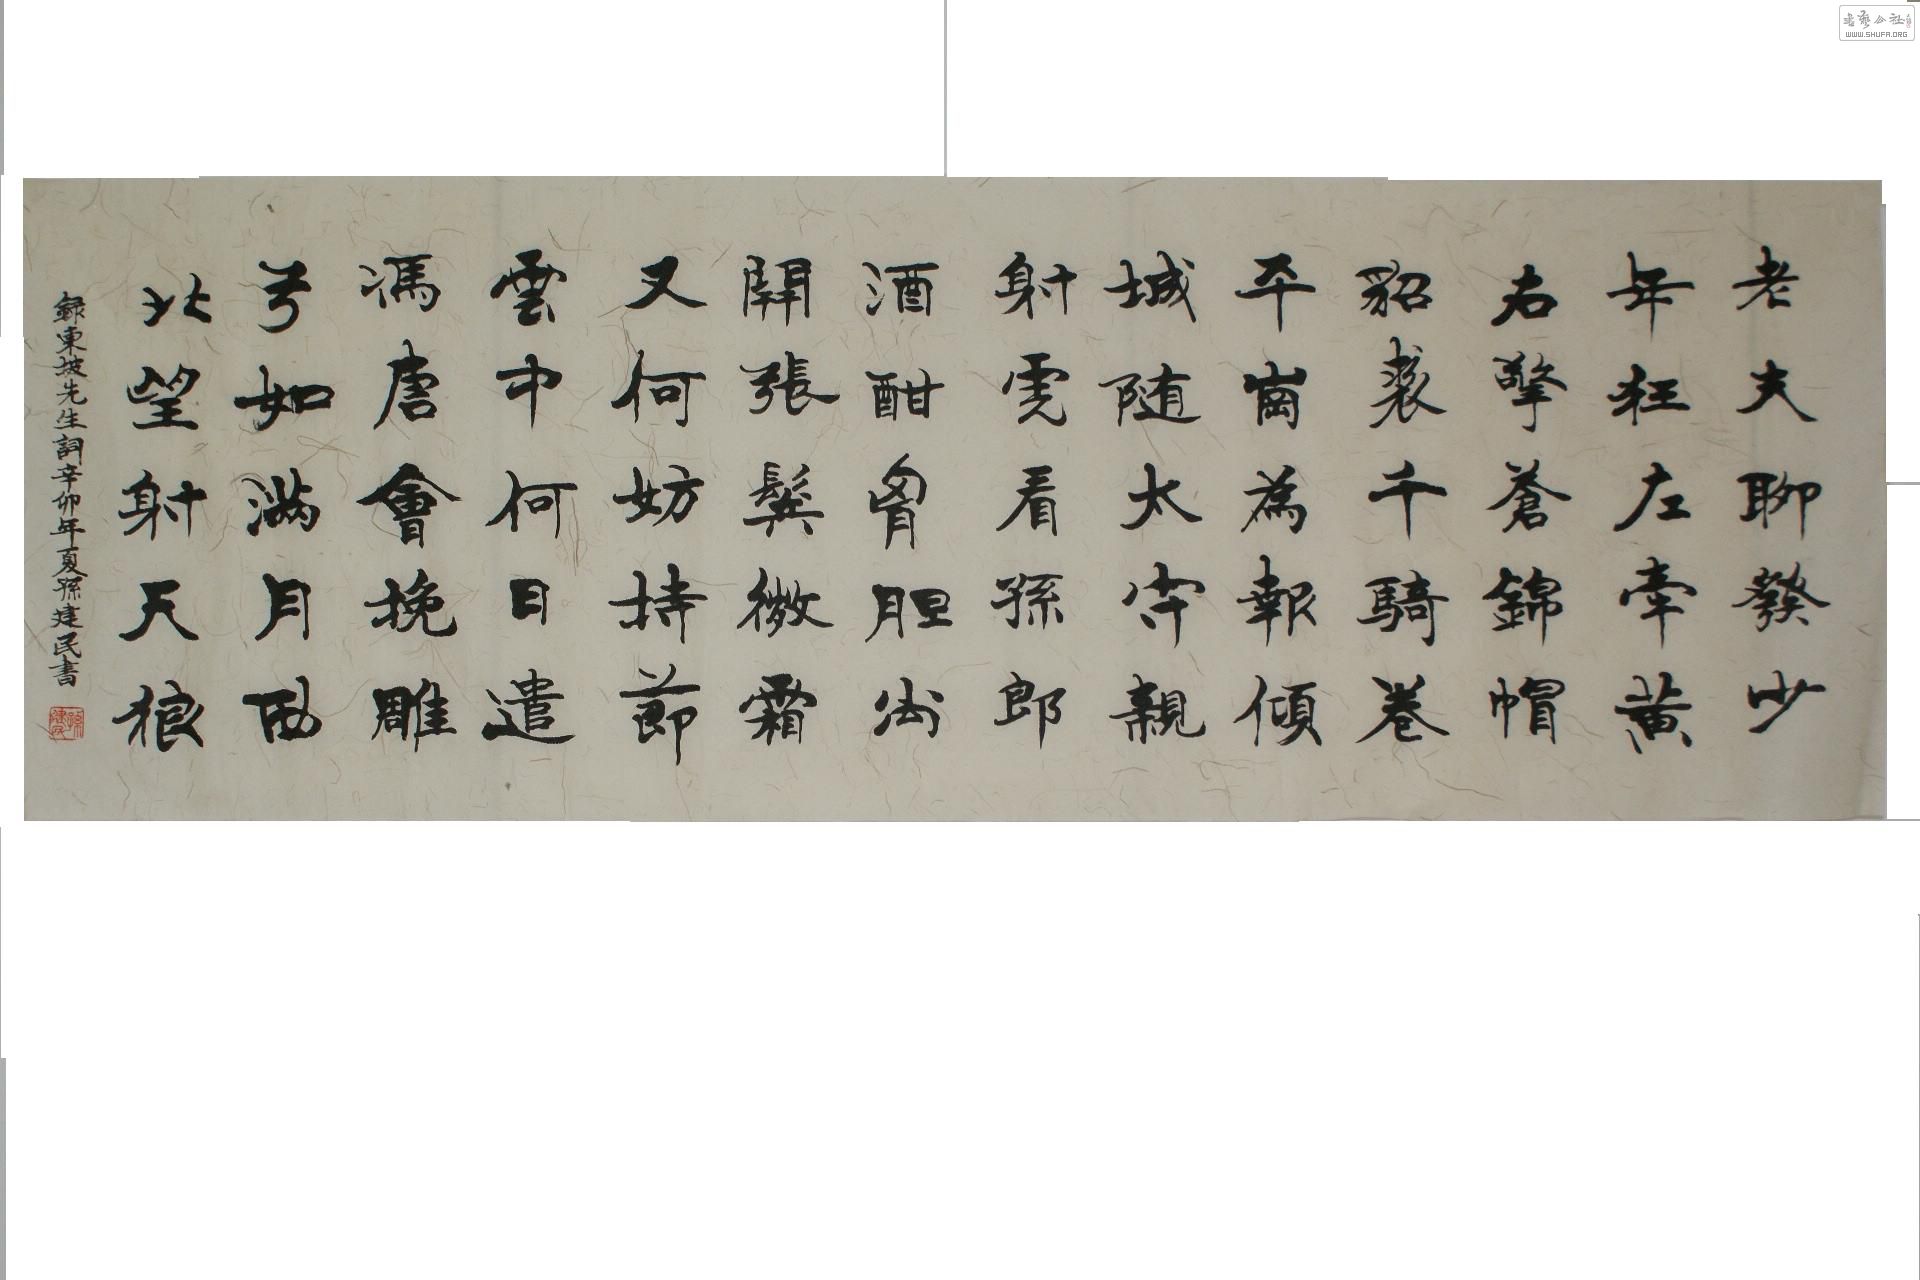 老夫聊發少
年狂左牽黃
右擎蒼錦帽
貂裘千騎卷
平崗為報傾
城随太守親
射虎看孫郎
酒酣胷胆尚
開張鬢微霜
又何妨持節
雲中何日遣
馮唐會挽雕
弓如滿月西
北望射天狼
錄東坡先生詞辛卯年夏孫建民書
孫建民
书艺公社
WWW.SHUFA.ORG